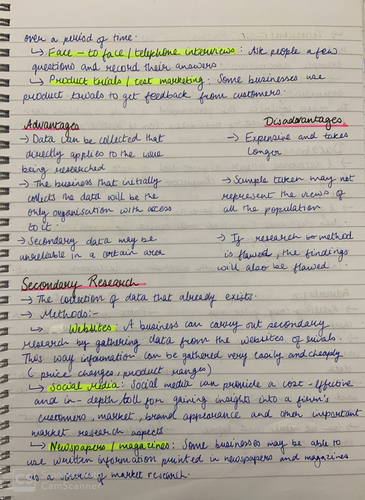 over a period of time.
↳ Face - to face / telephone interviews : Ask people a few
questions and record their answers
↳ Product trials / test marketing : Some businesses use
product trials to get feedback from customers.
Advantages
→ Data can be collected that
directly applies to the issue
being researched
→ The business that initially
collects the data will be the
only organisation with access
to it.
→ Secondary data may be
unreliable in a certain area
Disadvantages
→ Expensive and takes
longer
→ Sample taken may not
represent the views of
all the population
→ If research method
is flawed, the findings
will also be flawed
Secondary Research
→ The collection of data that already exists.
→ Methods:-
↳ Websites : A business can carry out secondary
research by gathering data from the websites of rivals.
This way information can be gathered very easily and cheaply
( price changes, product ranges)
↳ Social Media : Social media can provide a cost - effective
and in - depth toll for gaining insights into a firm's
customers, market, brand appearance and other important
market research aspects.
↳ Newspapers / magazines : Some businesses may be able to
use written information printed in newspapers and magazines
as a source of market research.
CS CamScanner